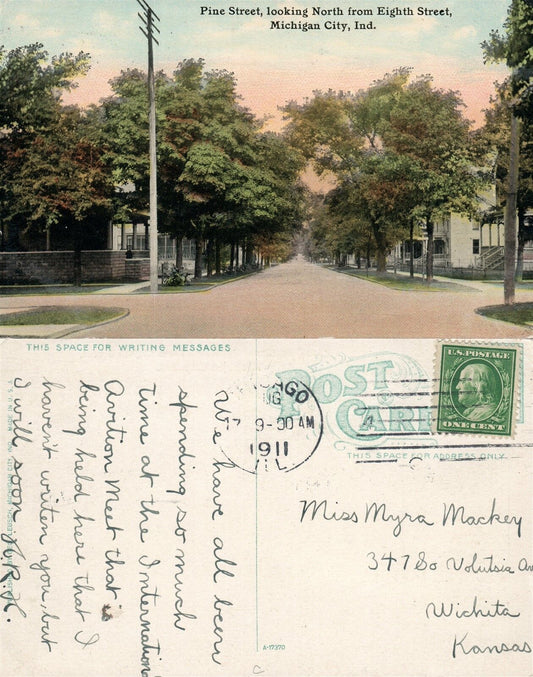 Pine Street, looking North from Eighth Street,
Michigan City, Ind.
THIS SPACE FOR WRITING MESSAGES
We have all been
spending so much
time at the International
Avition Meet that is
being held here that I
haven't writen you, but
I will soon. R.K.
POST
CARD
THIS SPACE FOR ADDRESS ONLY
9-00 AM
1911
ILL
U.S. POSTAGE
ONE CENT
Miss Myra Mackey
347 So Volutsia Av
Wichita
Kansas
MICHIGAN CITY, IND.
MADE IN U.S.A.
A-17370